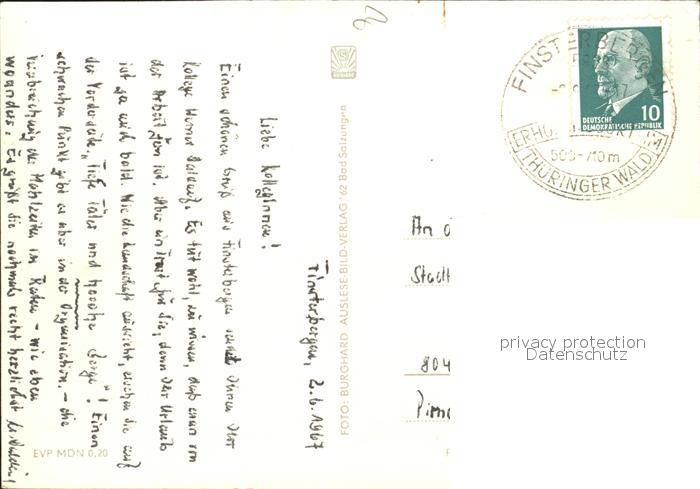 Finsterbergen, 2.6.1967
Liebe Kolleginnen!
Einen schönen Gruß aus Finsterbergen sendet Ihnen Ihr
Kollege Werner Es tut wohl, zu wissen, daß man von
der Arbeit fern ist. Aber ein Trost für Sie, denn der Urlaub
ist ja auch bald. Wie die Landschaft aussieht, ersehen Sie auf
der Vorderseite, "Tiefe Täler und hooohe Berge"! Einen
schwachen Punkt gibt es aber in der Organisation. - die
der Mahlzeiten im - wie eben
woanders. Es grüßt Sie nochmals recht herzlichst
EVP MDN 0,20
FOTO: BURGHARD AUSLESE-BILD-VERLAG / 62 Bad Salzungen
FINSTERBERGEN
ERHOLUNGSORT IM
500-710m
THÜRINGER WALD
10
DEUTSCHE
DEMOKRATISCHE REPUBLIK
An d
Stadt
804
Pirna
privacy protection
Datenschutz